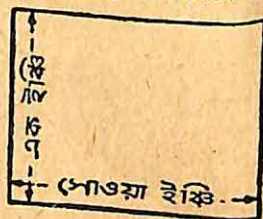 এক ইঞ্চি
সোওয়া ইঞ্চি